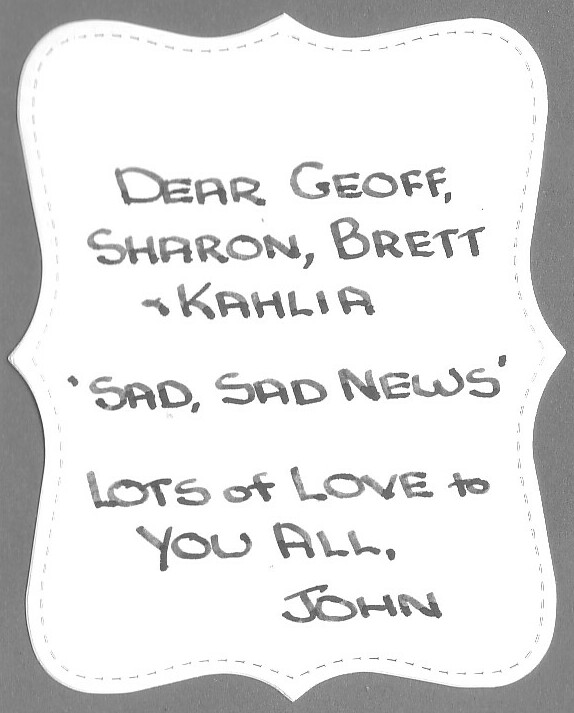 DEAR GEOFF,
SHARON, BRETT
& KAHLIA
'SAD, SAD NEWS'
LOTS of LOVE to
YOU ALL,
JOHN